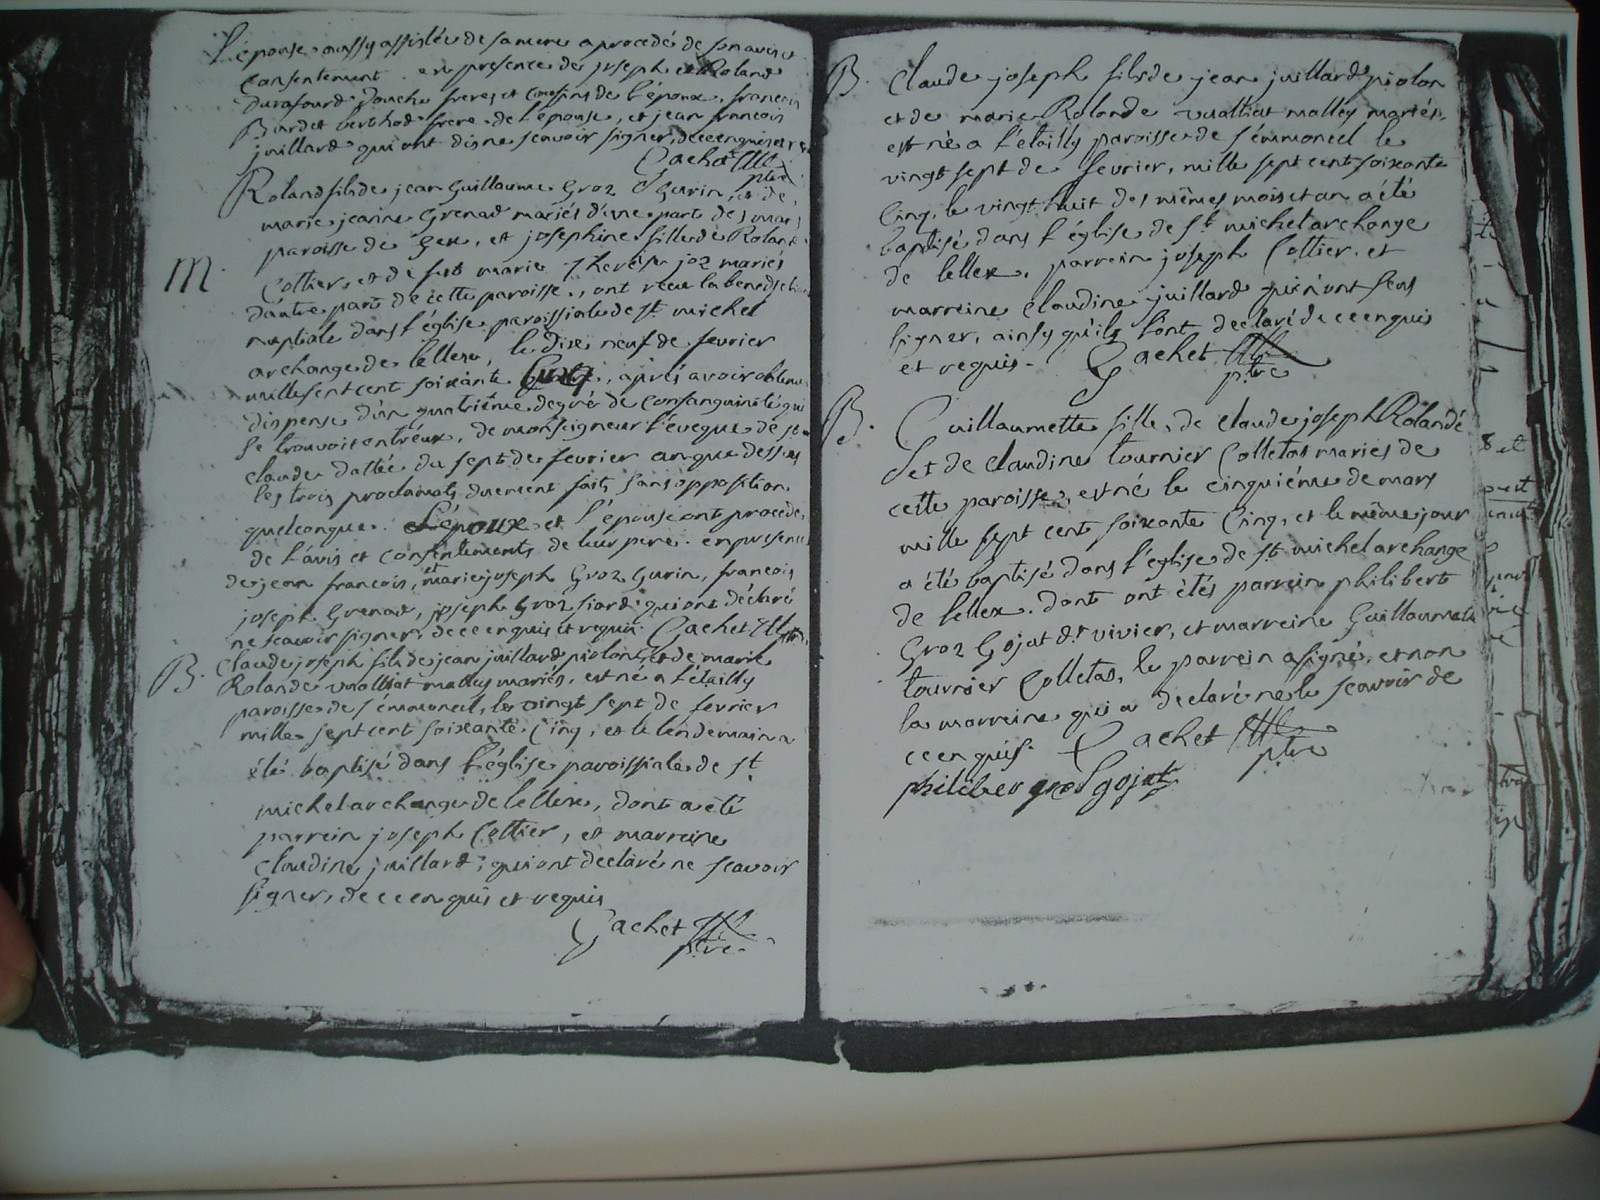 L'épouse aussy assistée de sa mere a procedé de son avis et
consentement. en presence de joseph et Roland
Durafourd Douch freres et cousins de l'epoux, francois
Burdet berthod frere de l'epouse, et jean francois
juillard qui ont dis ne scavoir signer, de ce enquis et
Gachet
ptre
Roland fils de jean Guillaume Groz Gurin, et de
marie jeanne Grenard mariés d'une part des
paroisse de Gex, et josephine fille de Roland
M. Coltier, et de marie Therese joz mariés
d'autre part de cette paroisse, ont recu la benedicti
nuptiale dans l'église paroissiale de st michel
archange de lellex, le dix neuf de fevrier
mille sept cent soixante Cinq, aprés avoir obtenu
dispense d'un quatriéme degré de consanguinité qui
se trouvoit entr'eux, de monseigneur l'eveque de st
claude dattée du sept de fevrier an que dessus
les trois proclamats duement faits sans opposition
quelconque. L'époux et l'épouse ont procede
de l'avis et consentements de leur pere. en presence
de jean francois, et marie joseph Groz Gurin, francois
joseph Grenard, joseph Groz siard qui ont déclaré
ne scavoir signer, de ce enquis et requis. Gachet
B. Claude joseph fils de jean juillard piolon, et de marie
Rolande vuailliat malley mariés, est né a l'etailly
paroisse de sémmoncel, le vingt sept de fevrier
mille sept cent soixante Cinq, et le lendemain a
été baptisé dans l'église paroissiale de st
michel archange de lellex, dont a été
parrein joseph Coltier, et marreine
Claudine juillard, qui ont declaré ne scavoir
signer, de ce enquis et requis
Gachet
ptre
B. Claude joseph fils de jean juillard piolon
et de marie Rolande vuailliat malley mariés,
est né a l'étailly paroisse de sémmoncel le
vingt sept de fevrier, mille sept cent soixante
Cinq, le vingt huit des mêmes mois et an a été
baptisé dans l'église de st michel archange
de lellex, parrein joseph Coltier et
marreine claudine juillard qui n'ont sçus
signer, ainsy qu'ils l'ont declaré de ce enquis
et requis. Gachet
ptre
B. Guillaumette fille, de claude joseph Rolandé
et de claudine tournier Colletas mariés de
cette paroisse, est né le cinquiéme de mars
mille sept cent soixante Cinq, et le même jour
a été baptisé dans l'église de st michel archange
de lellex. dont ont étés parrein philibert
Groz Gojat dt vivier, et marreine Guillaumette
tournier Colletas, le parrein a signé, et non
la marreine qui a declaré ne le scavoir de
ce enquis. Gachet
ptre
philiber groz gojat